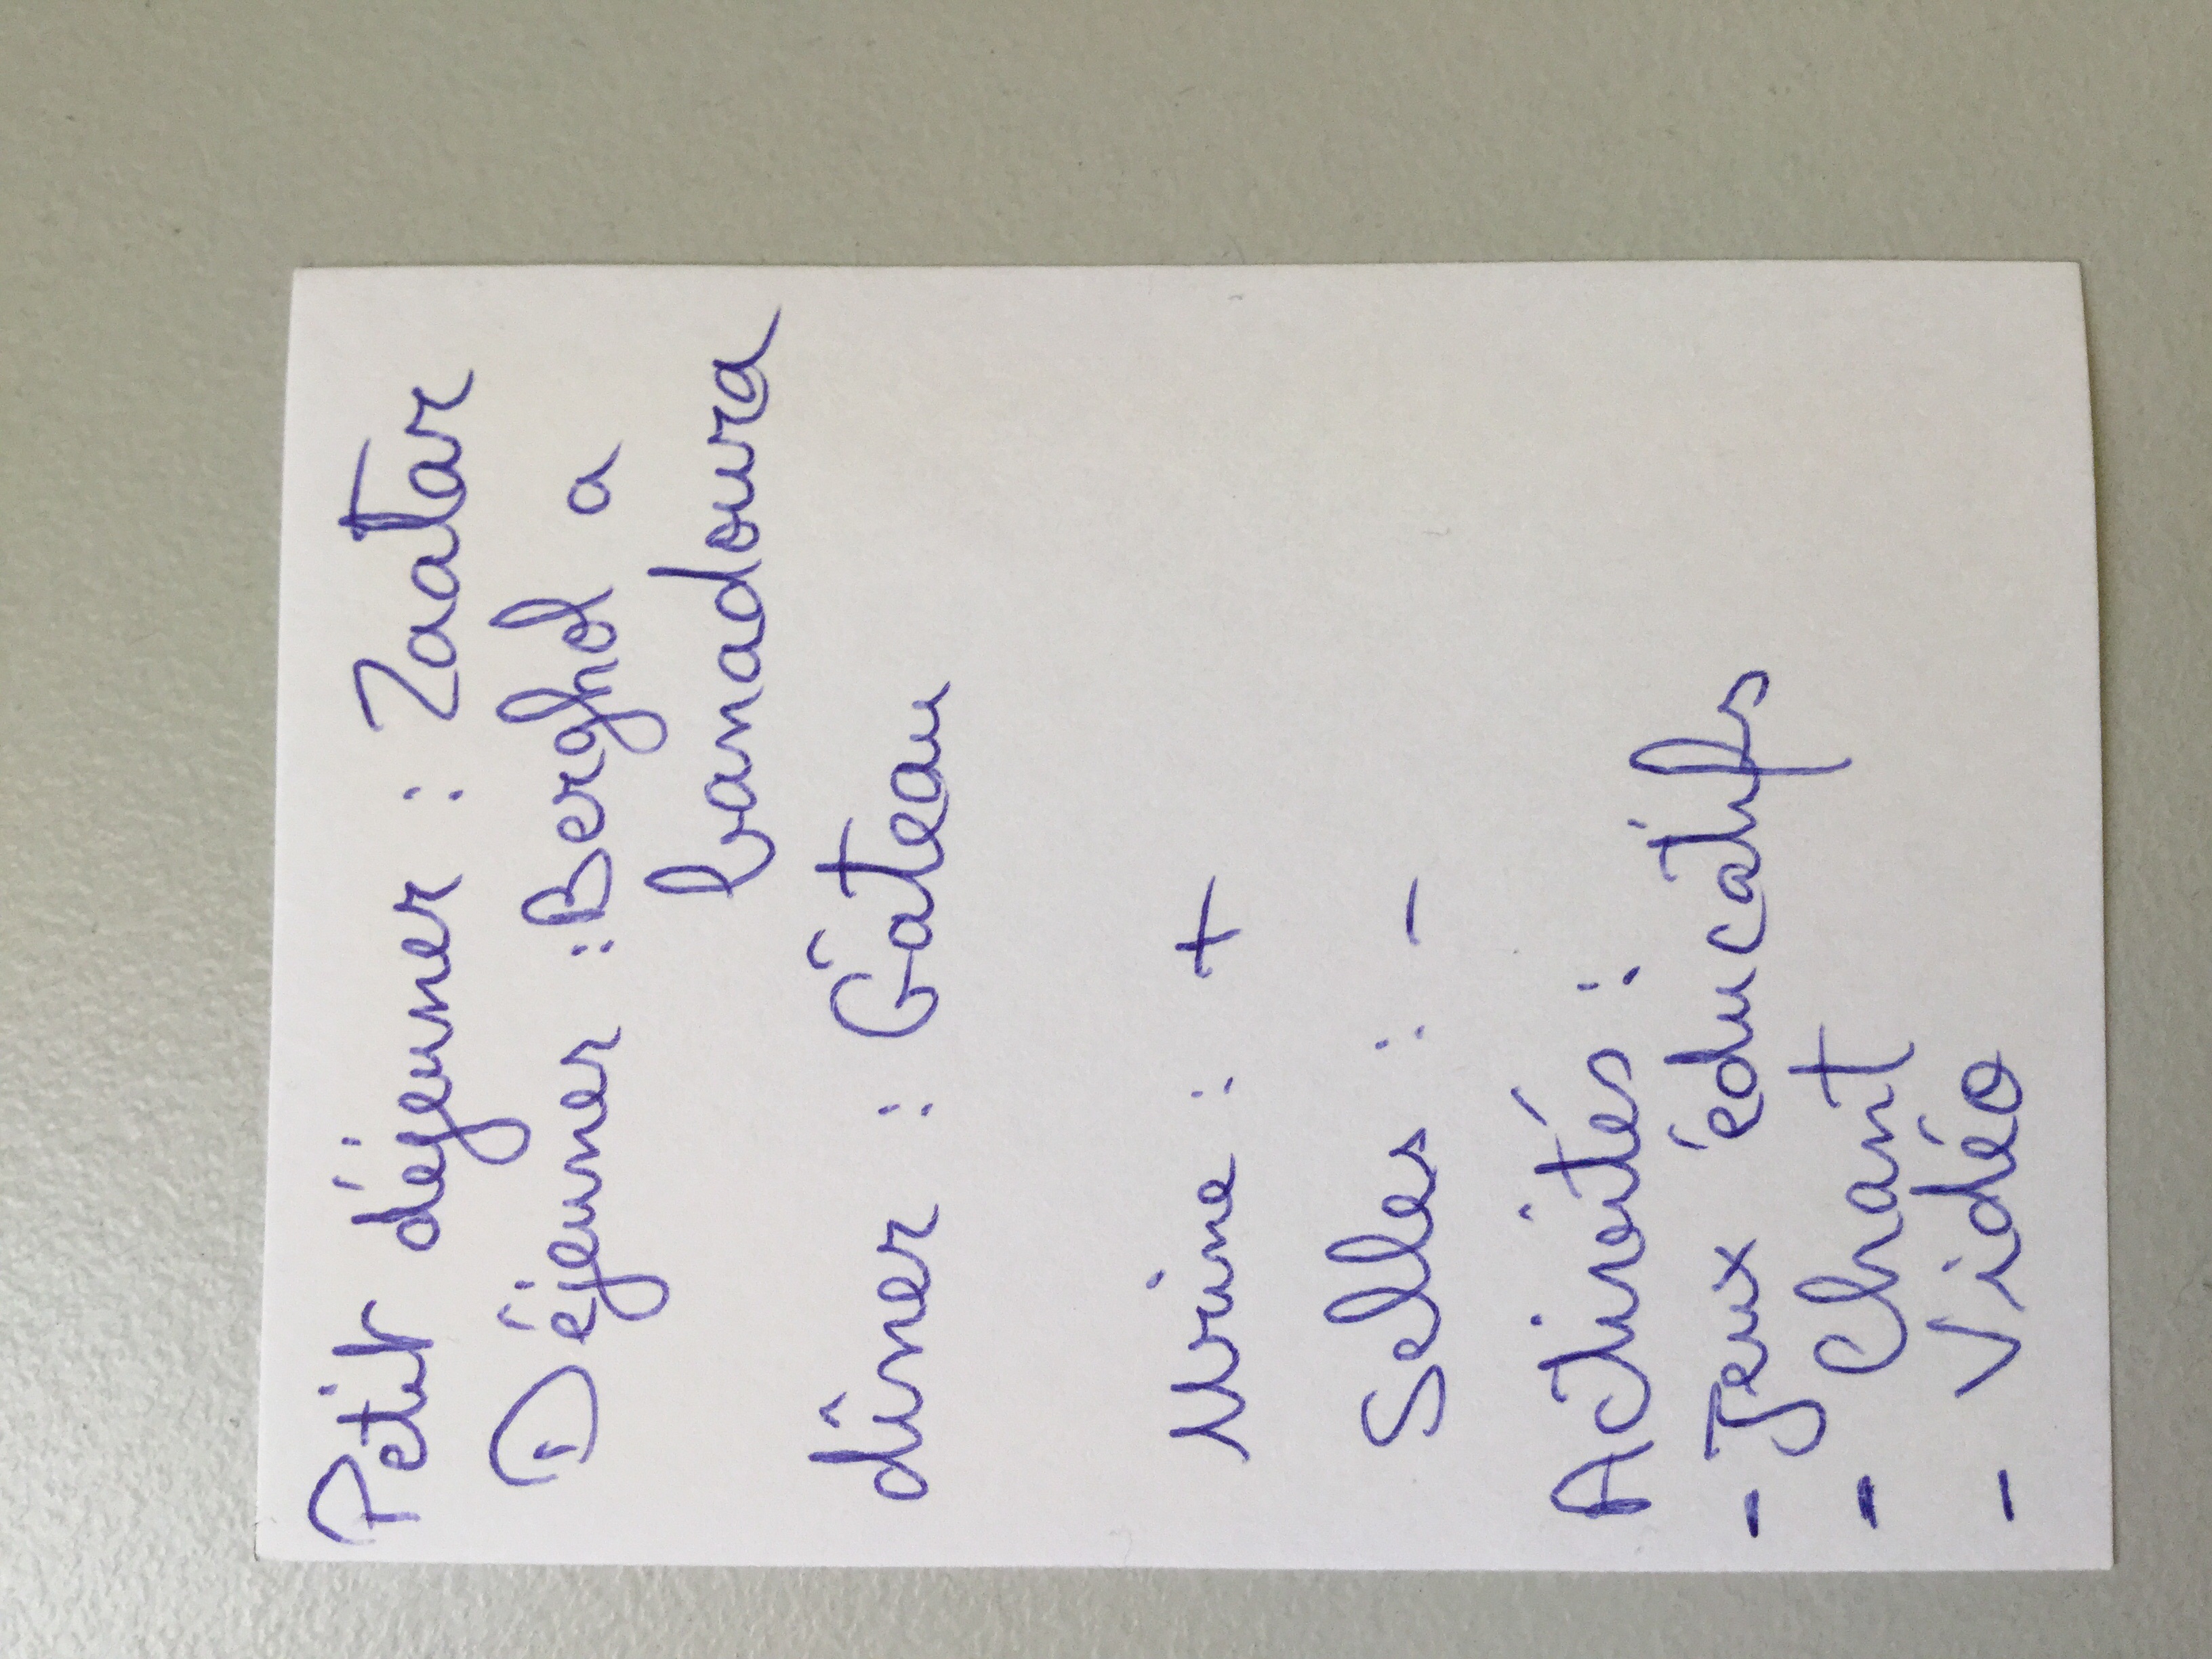 Petit déjeuner : Zaatar
Déjeuner : Berghol a
banadoura
dîner : Gâteau
Urine : +
Selles : -
Activités :
- Jeux éducatifs
- Chant
- Vidéo